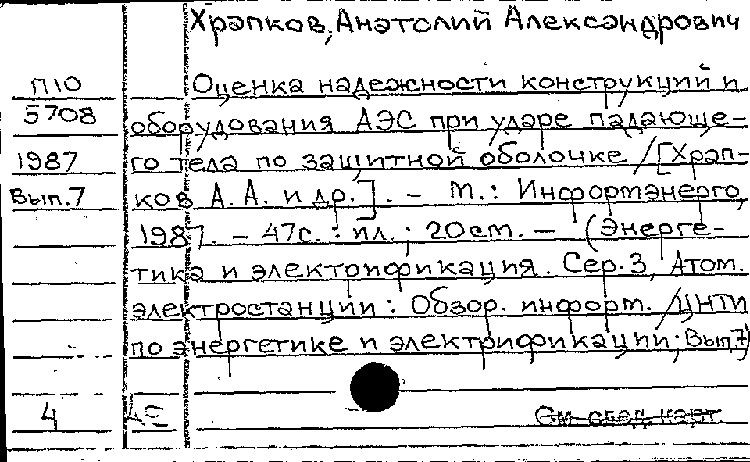 Храпков, Анатолий Александрович
П10 Оценка надежности конструкций и
5708 оборудования АЭС при ударе падающе-
1987 го тела по защитной оболочке / [Храп-
Вып.7 ков А. А. и др.]. - М.: Информэнерго,
1987. - 47с.: ил.; 20см. - (Энерге-
тика и электрификация. Сер.3, Атом.
электростанции: Обзор. информ. / ЦНТИ
по энергетике и электрификации; Вып.7)
4 См. след. карт.